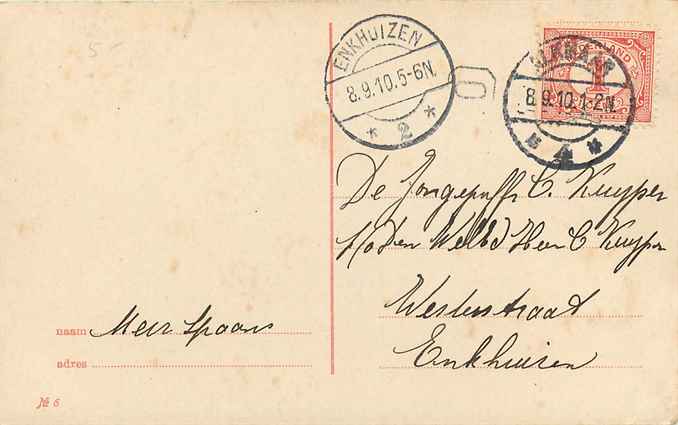 5-
ENKHUIZEN
8.9.10.5-6N.
* 2 *
ALKMAAR
8.9.10.1-2N
* 4 *
NEDERLAND
1
De Jongejuffr C. Kuyper
p/a Den Weled Heer C Kuyper
Westerstraat
Enkhuizen
naam Meur Spaans
adres
№ 6